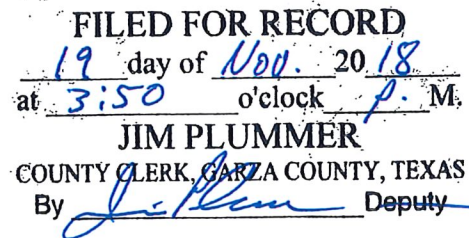 FILED FOR RECORD
19 day of Nov. 20 18
at 3:50 o'clock P. M.
JIM PLUMMER
COUNTY CLERK, GARZA COUNTY, TEXAS
By Jim Plummer Deputy